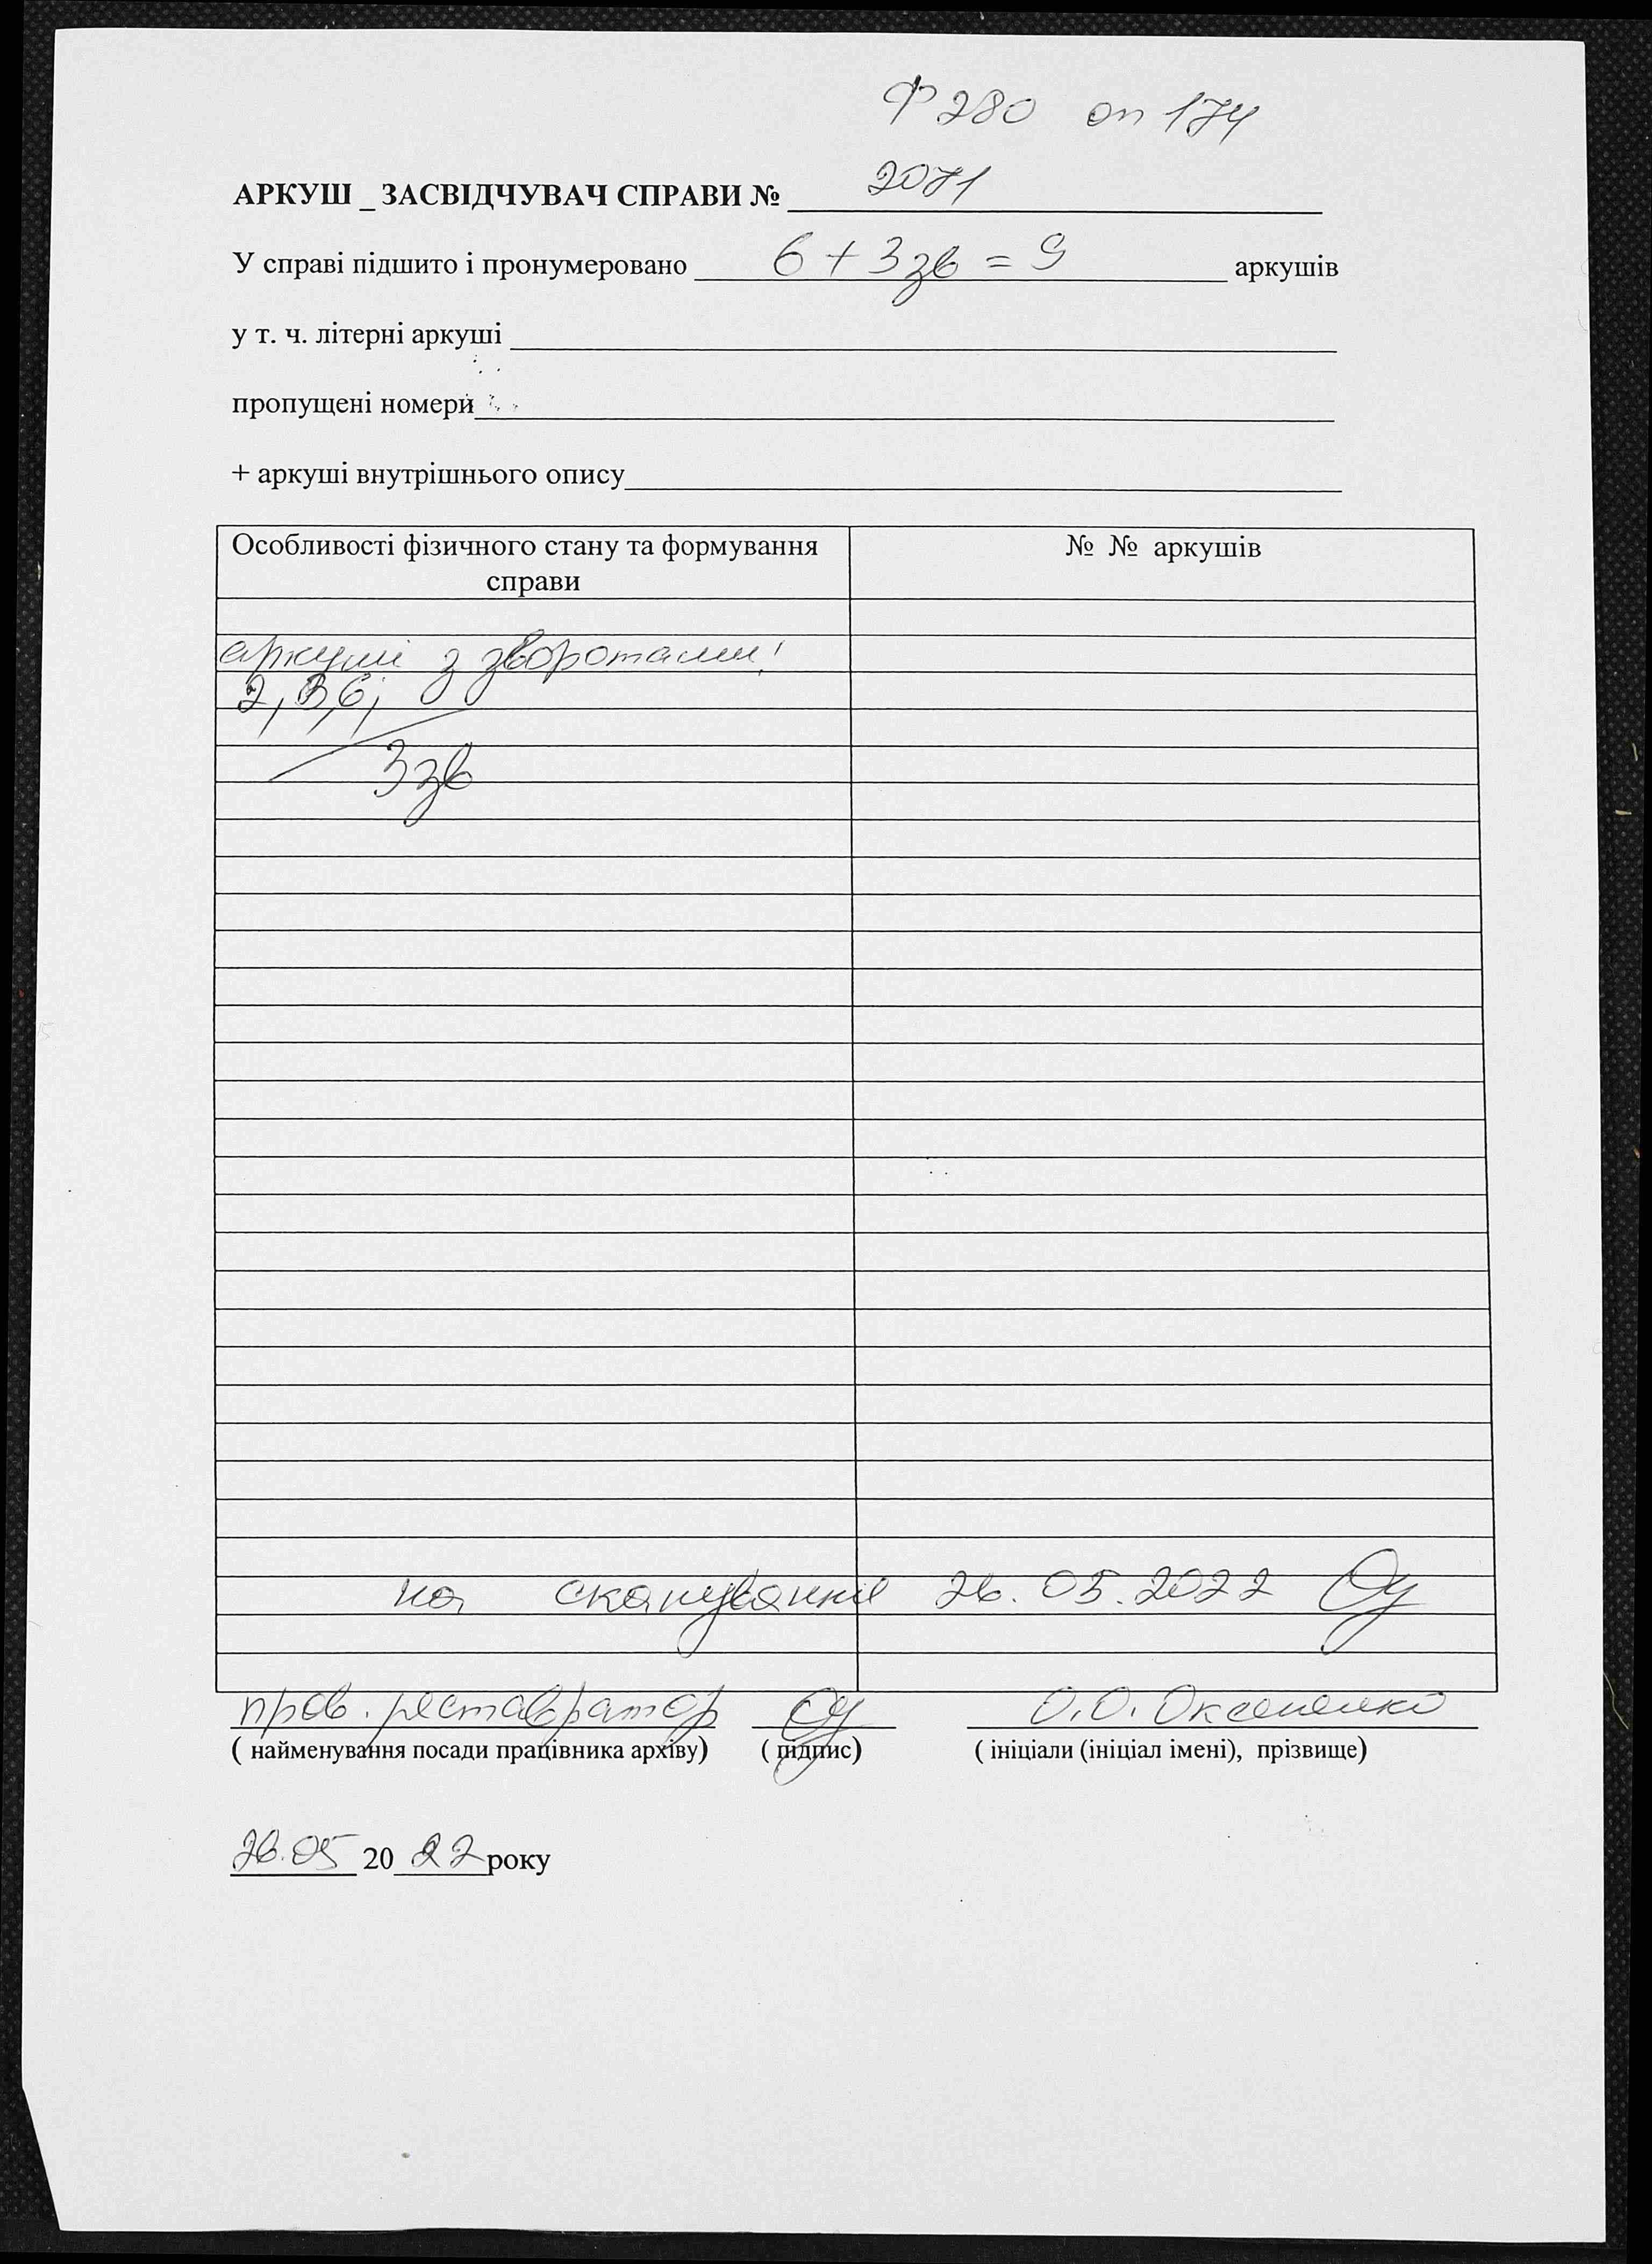 Ф 280 оп 174
АРКУШ _ ЗАСВІДЧУВАЧ СПРАВИ № 2071
У справі підшито і пронумеровано 6 + 3 зв = 9 аркушів
у т. ч. літерні аркуші
пропущені номери
+ аркуші внутрішнього опису
Особливості фізичного стану та формування справи
№ № аркушів
аркуші з зворотами!
2, 3, 6;
3 зв
на сканування 26.05.2022
пров. реставратор О.О. Оксененко
( найменування посади працівника архіву) ( підпис) ( ініціали (ініціал імені), прізвище)
26.05 2022 року